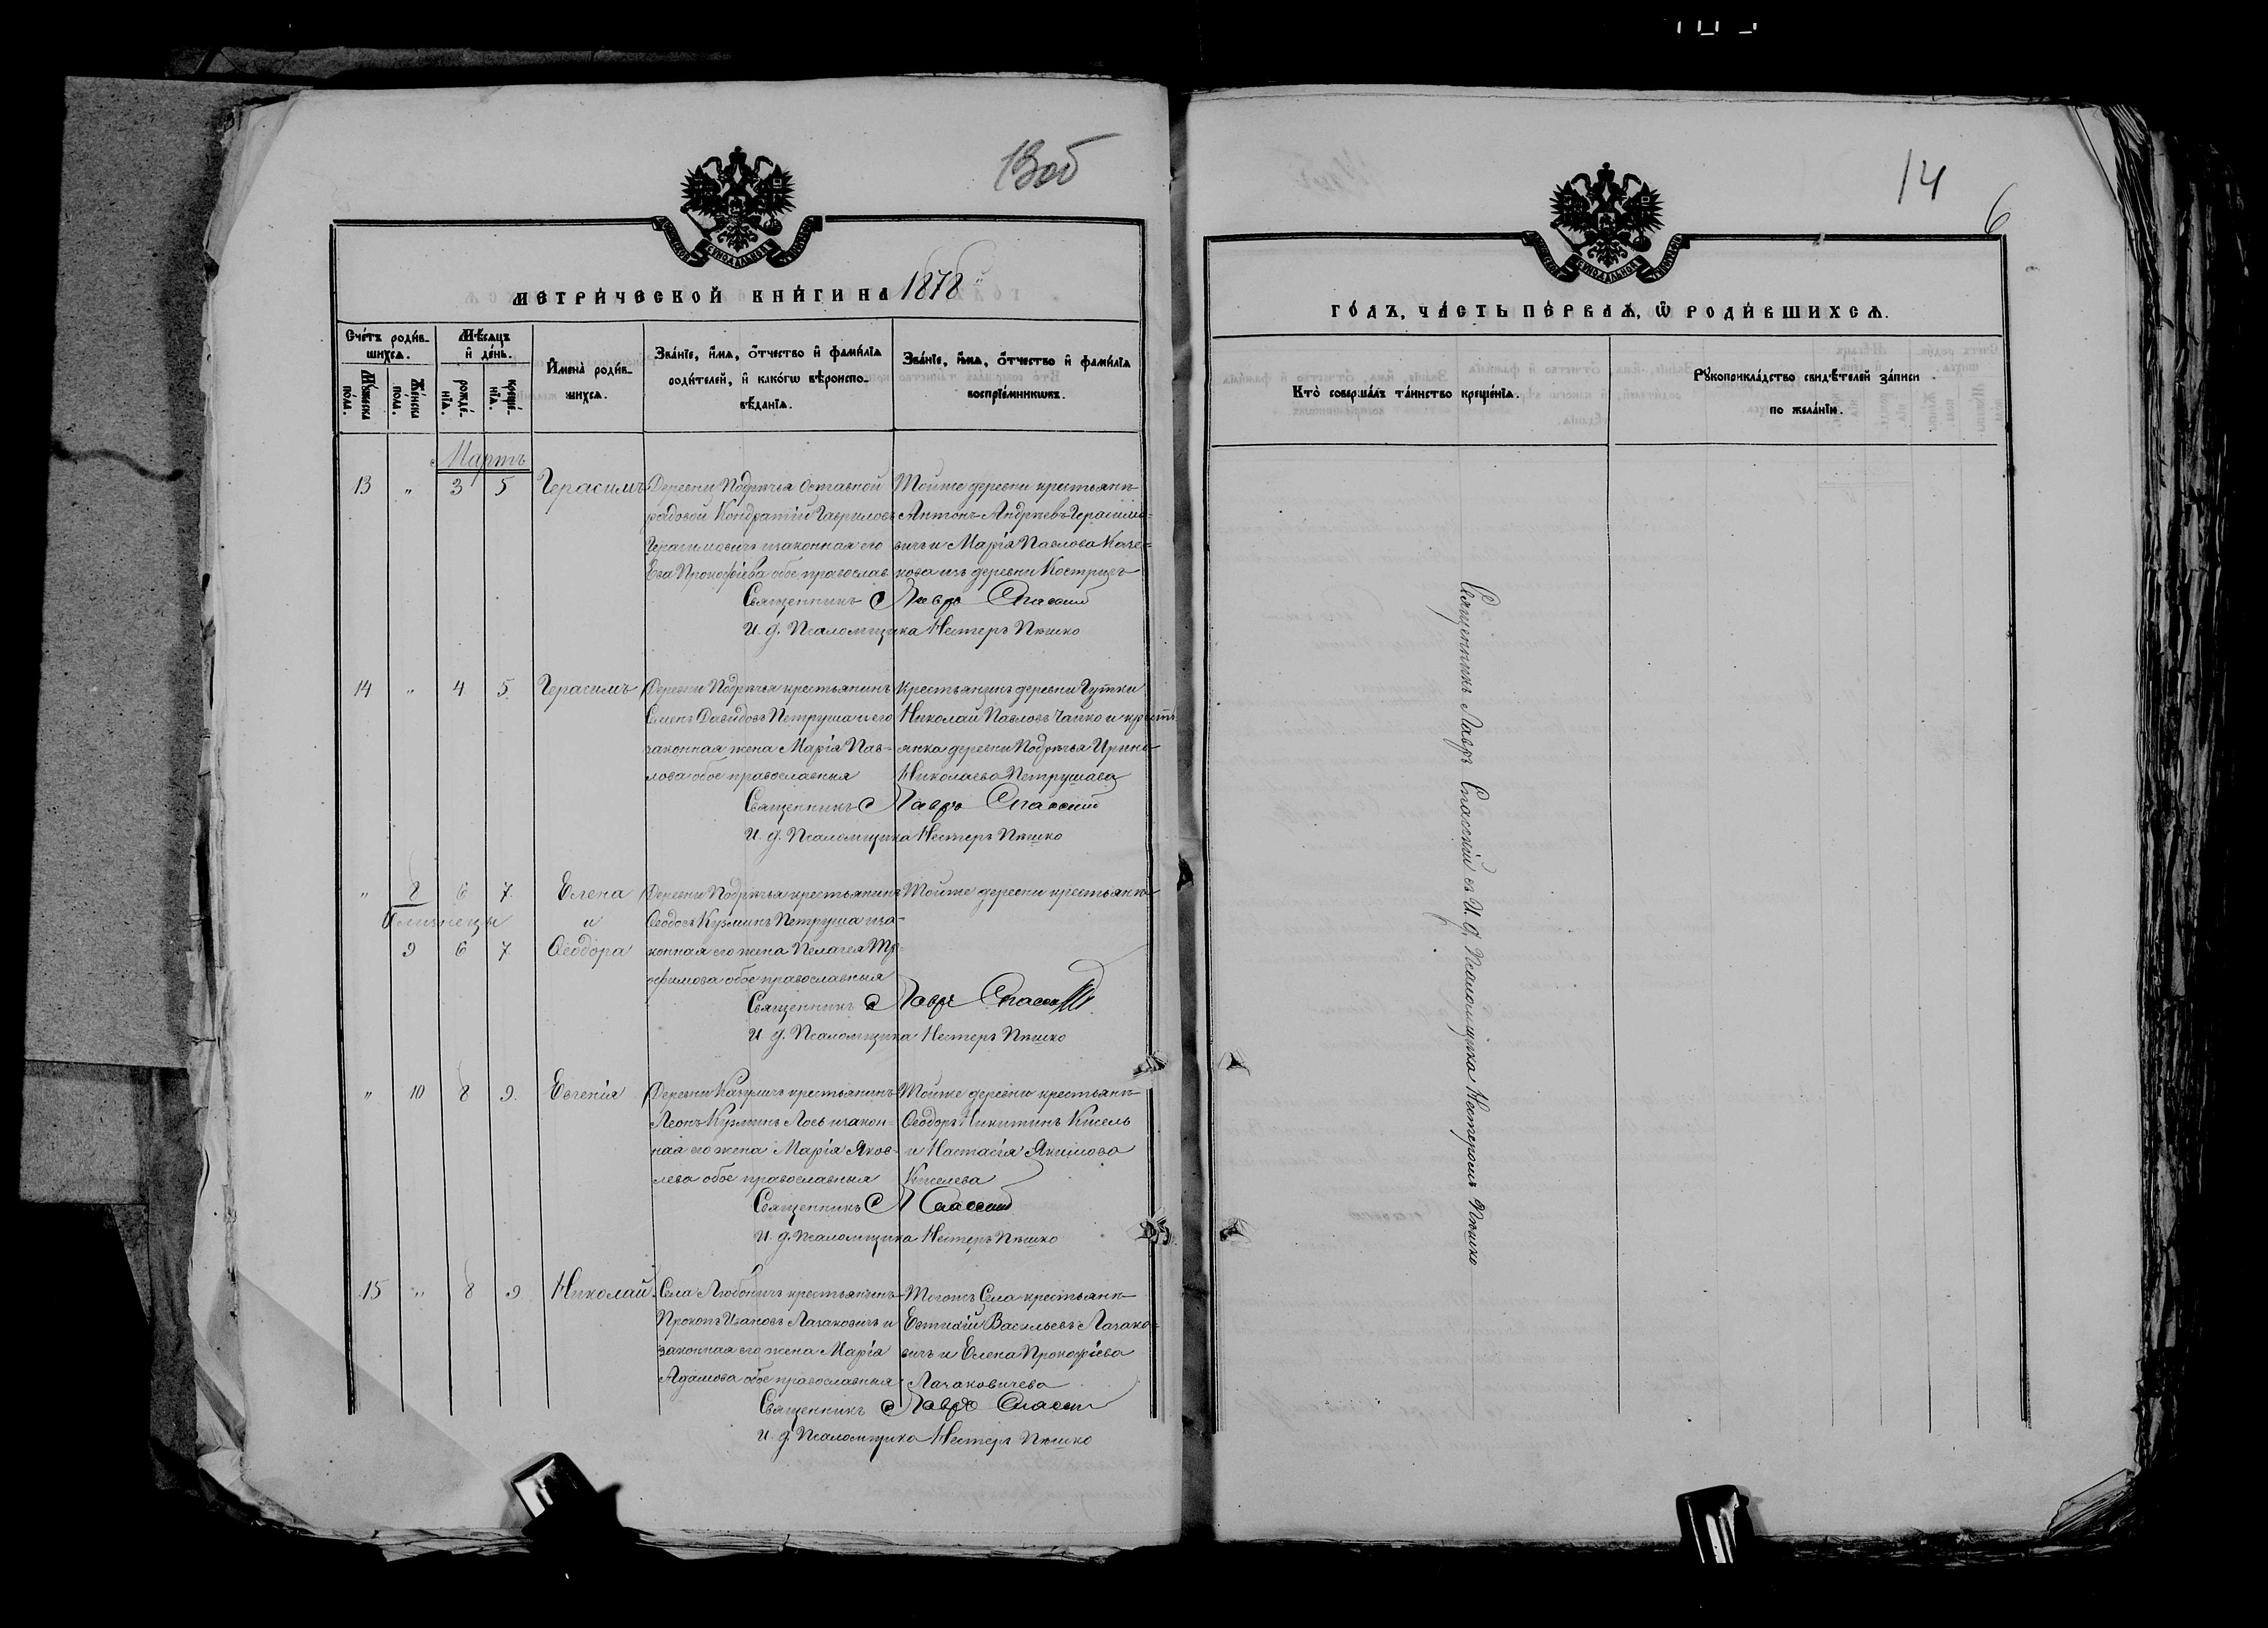 13об
МОСКОВСКОЙ СѴНОДАЛЬНОЙ ТѴПОГРАФІИ
МЕТРИ́ЧЕСКОЙ КНИ́ГИ НА 1878й
Счéтъ роди́в-
шихсѧ.
Мꙋ́жеска по́ла.
Же́нска по́ла.
Мѣ́сѧцъ
и҆ де́нь.
рожде́-нїѧ.
креще́-нїѧ.
И҆мена̀ роди́в-
шихсѧ.
Зва́нїе, и҆́мѧ, ѻ҆́тчество и҆ фами́лїѧ
роди́телей, и҆ како́гѡ вѣроиспо-
вѣ́данїѧ.
Зва́нїе, и҆́мѧ, ѻ҆́тчество и҆ фами́лїѧ
воспрїе́мникѡвъ.
Мартъ
13 " 3 5 Герасимъ
Деревни Подрѣчья Отставной
рядовой Кондратій Гавриловъ
Герасимовичъ и законная его
Ева Прокофіева обое православ.
Тойже деревни крестьянъ
Антонъ Андреевъ Герасимо-
вичъ и Марія Павлова
изъ деревни
Священникъ Лавръ Спасскій
И. д. Псаломщика Нестеръ Пѣшко
14 " 4 5 Герасимъ
Деревни Подрѣчья крестьянинъ
Семенъ Давидовъ Петруша и его
законная жена Марія Пав-
лова обое православныя
Крестьянинъ деревни Гутки
Николай Павловъ Чайко и крестъ
янка деревни Подрѣчья Ирина
Николаева Петрушава
Священникъ Лавръ Спасскій
И. д. Псаломщика Нестеръ Пѣшко
" 8 6 7 Елена
Близнецы и
9 6 7 Ѳеодора
Деревни Подрѣчья крестьянинъ
Ѳеодосъ Кузминъ Петруша и за-
конная его жена Пелагея Тр-
офимова обое православныя
Тойже деревни крестьянъ
Священникъ Лавръ Спасскій
И. д. Псаломщика Нестеръ Пѣшко
" 10 8 9. Евгенія
Деревни крестьянинъ
Леонъ Кузминъ Лось и закон-
ная его жена Марія Яков-
лева обое православныя
Тойже деревни крестьянъ
Ѳеодоръ Никитинъ Кисель
и Настасія Якимова
Киселева
Священникъ Л Спасскій
И. д. Псаломщика Нестеръ Пѣшко
15 " 8 9 Николай
Села Любоничъ крестьянинъ
Прокопъ Ивановъ Лагаковичъ и
законная его жена Марія
Адамова обое православныя
Тогожъ Села крестьянъ
Евтихій Васильевъ Лагако-
вичъ и Елена Прокофіева
Лагаковичева
Священникъ Лавръ Спасскій
И. д. Псаломщика Нестеръ Пѣшко
14
6
МОСКОВСКОЙ СѴНОДАЛЬНОЙ ТѴПОГРАФІИ
ГО́ДЪ, ЧА́СТЬ ПЕ́РВАѦ, Ѡ҆ РОДИ́ВШИХСѦ.
Кто̀ соверша́лъ та́инство креще́нїѧ.
Рꙋкоприкла́дство свидѣ́телей за́писи
по жела́нїю.
Священникъ Лавръ Спасскій съ И. д. Псаломщика Нестеромъ Пѣшко